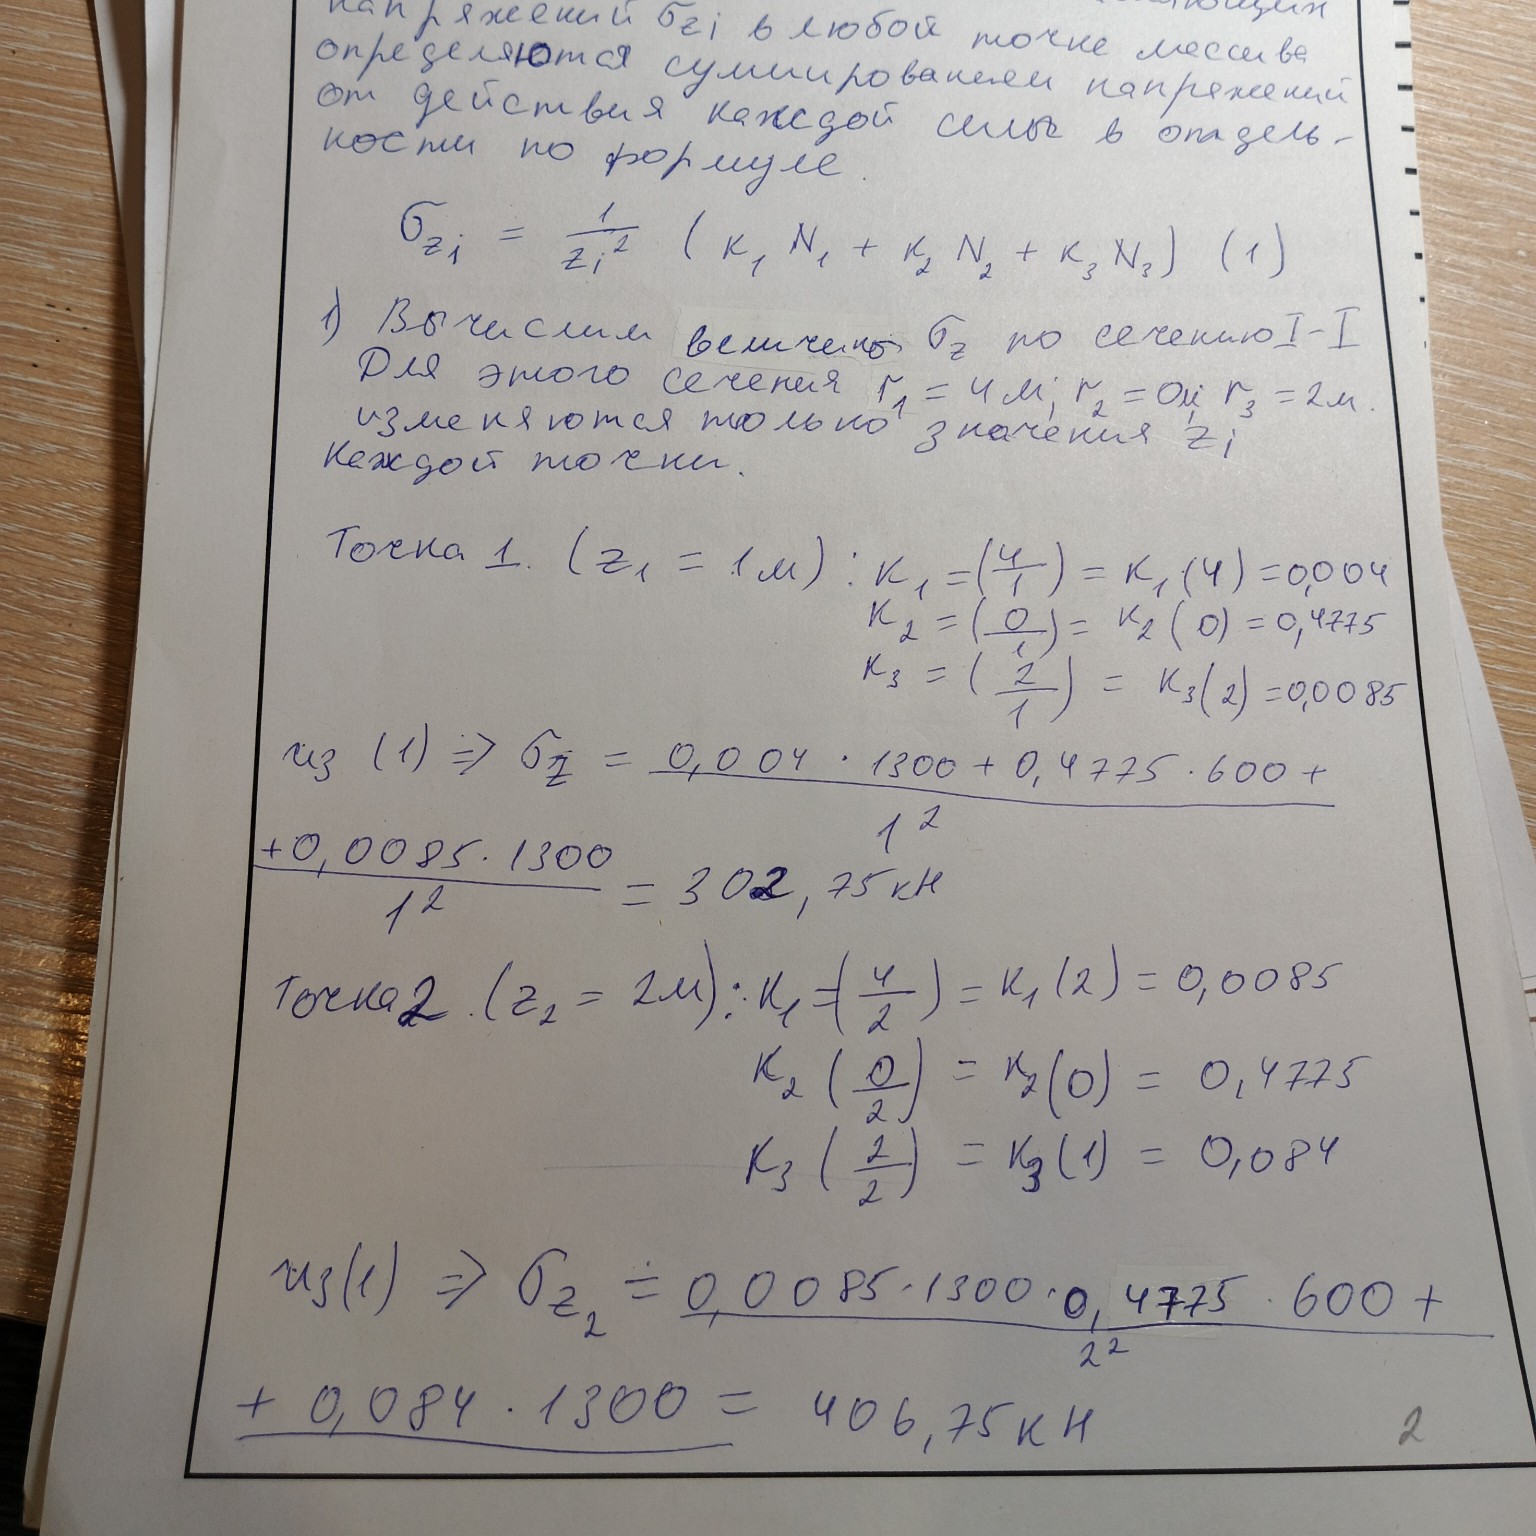 напряжений σzi в любой точке массива
определяются суммированием напряжений
от действия каждой силы в отдель-
ности по формуле.
σzi = 1/zi² (к₁ N₁ + к₂ N₂ + к₃ N₃) (1)
1) Вычислим величино σz по сечению I-I
Для этого сечения r₁ = 4м; r₂ = 0м; r₃ = 2м.
изменяются только значения zi
каждой точки.
Точка 1. (z₁ = 1м): к₁ = (4/1) = к₁(4) = 0,004
к₂ = (0/1) = к₂(0) = 0,4775
к₃ = (2/1) = к₃(2) = 0,0085
из (1) => σz = 0,004 · 1300 + 0,4775 · 600 +
1²
+0,0085 · 1300 / 1² = 302,75 кН
Точка 2. (z₂ = 2м): к₁ = (4/2) = к₁(2) = 0,0085
к₂ (0/2) = к₂(0) = 0,4775
к₃ (2/2) = к₃(1) = 0,084
из(1) => σz₂ = 0,0085 · 1300 · 0,4775 · 600 +
2²
+ 0,084 · 1300 = 406,75 кН
2